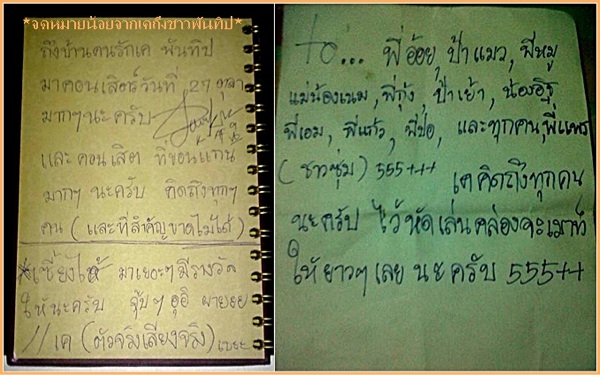 *จดหมายน้อยจากเคถึงชาวพันทิป*
ถึงบ้านคนรักเค พันทิป
มาคอนเสิร์ตวันที่ 27 ตุลา
มากๆนะครับ
และคอนเสิต ที่ขอนแก่น
มากๆ นะครับ คิดถึงทุกๆ
คน (และที่สำคัญขาดไม่ได้)
*เซี่ยงไฮ้ มาเยอะๆมีรางวัล
ให้นะครับ จุ๊บๆ อุอิ
// เค (ตัวจริงเสียงจริง)
to... พี่อ้อย, ป้าแมว, พี่หมู
แม่น้องเนม, พี่กุ้ง, ป้าเย้า, น้อง
พี่เอม, พี่แก้ว, พี่ปอ, และทุกคน,
(ชาวซุ่ม) 555+++ เคคิดถึงทุกคน
นะครับ ไว้หัดเล่นคล่องจะเมาท์
ให้ยาวๆเลย นะครับ 555++